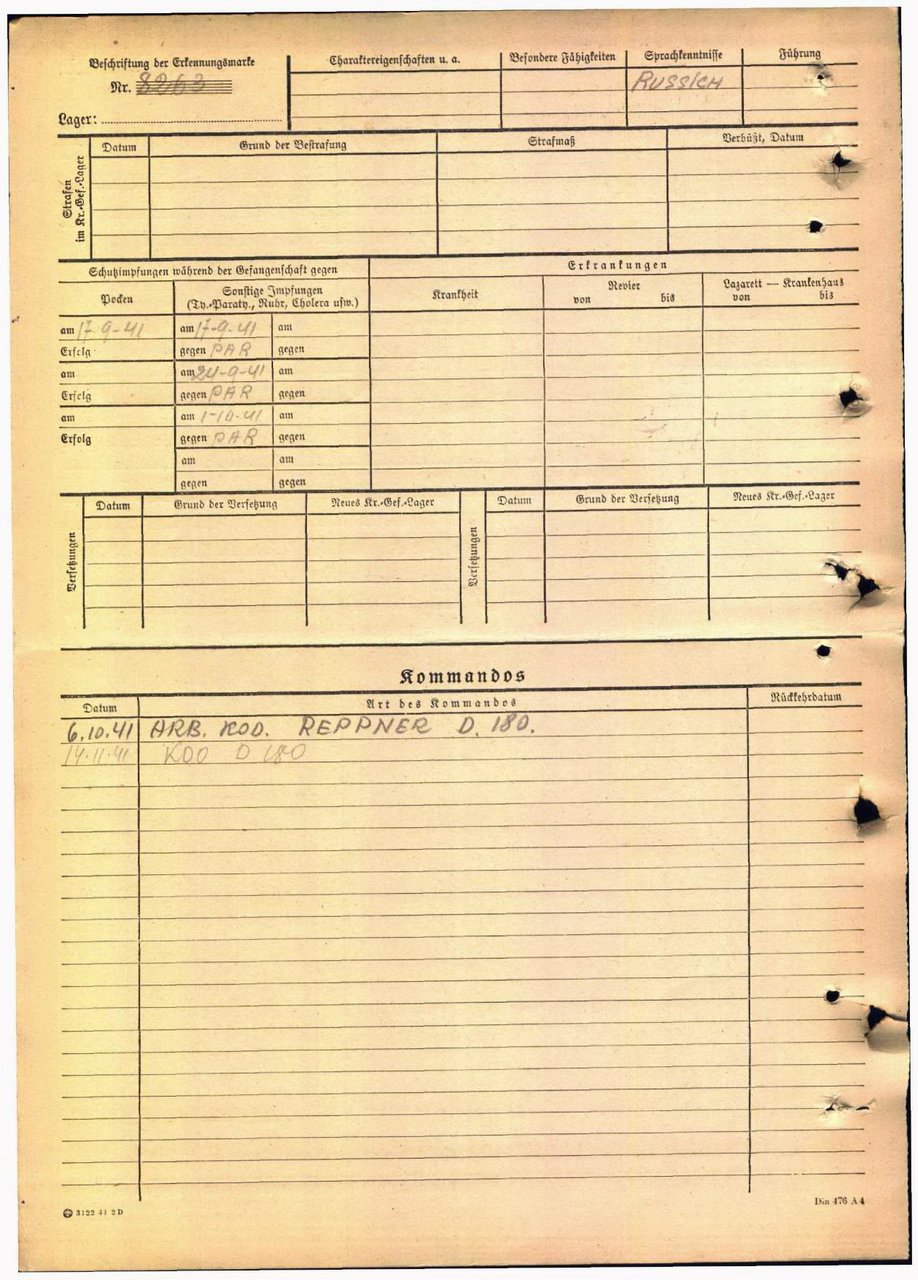 Beschriftung der Erkennungsmarke
Nr. 8263
Lager:
Charaktereigenschaften u. a.
Besondere Fähigkeiten
Sprachkenntnisse
Führung
RUSSICH
Strafen im Kr.-Gef.-Lager
Datum
Grund der Bestrafung
Strafmaß
Verbüßt, Datum
Schutzimpfungen während der Gefangenschaft gegen
Erkrankungen
Pocken
Sonstige Impfungen
(Ty.-Paraty., Ruhr, Cholera usw.)
Krankheit
Revier
von bis
Lazarett — Krankenhaus
von bis
am 17-9-41 am 17-9-41 am
Erfolg gegen PAR gegen
am am 24-9-41 am
Erfolg gegen PAR gegen
am am 1-10-41 am
Erfolg gegen PAR gegen
am am
gegen gegen
Versetzungen
Datum
Grund der Versetzung
Neues Kr.-Gef.-Lager
Versetzungen
Datum
Grund der Versetzung
Neues Kr.-Gef.-Lager
Kommandos
Datum
Art des Kommandos
Rückkehrdatum
6.10.41 ARB. KOD. REPPNER D. 180.
14.11.41 KDO D 180
3122 41 2D
Din 476 A4